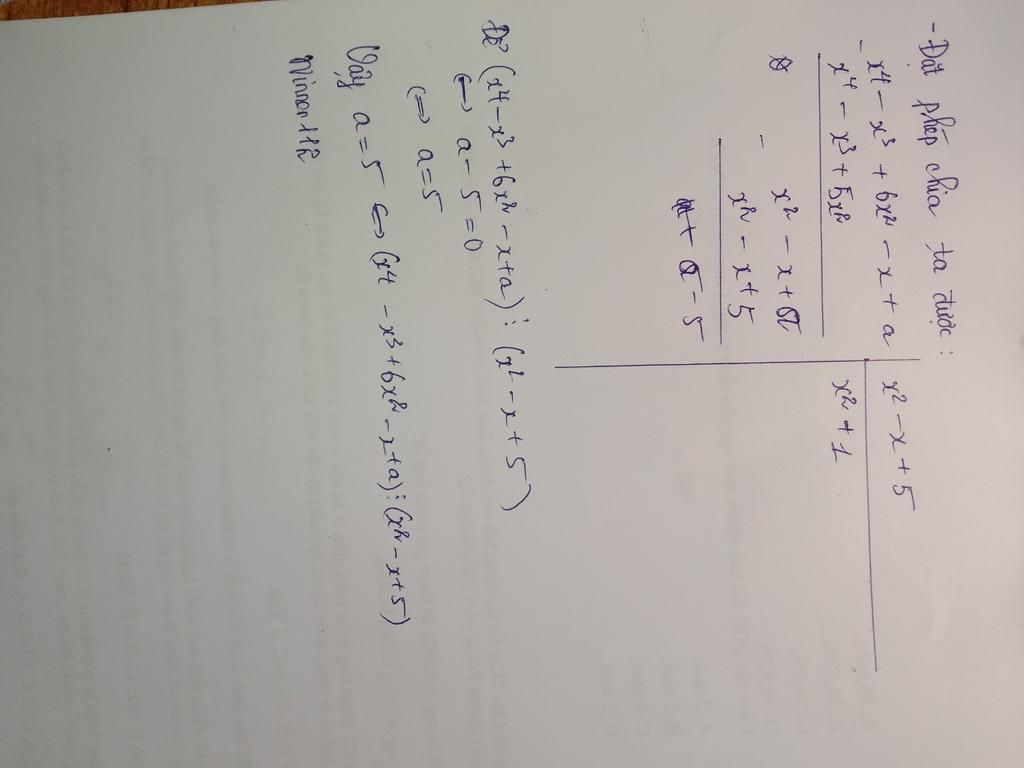 - Đặt phép chia ta được:
- x⁴ - x³ + 6x² - x + a | x² - x + 5
x⁴ - x³ + 5x² | x² + 1
- x² - x + a
x² - x + 5
a - 5
Để (x⁴ - x³ + 6x² - x + a) ⋮ (x² - x + 5)
<=> a - 5 = 0
<=> a = 5
Vậy a = 5 <=> (x⁴ - x³ + 6x² - x + a) ⋮ (x² - x + 5)